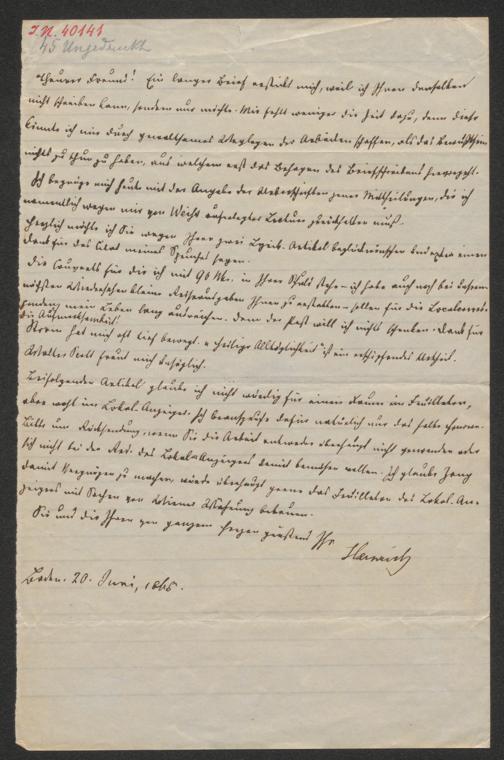 I.N. 40141
45 Ungedruckt
Theurer Freund! Ein langer Brief erstickt mich, weil ich Ihnen denselben
nicht schreiben kann, sondern nur möchte. Mir fehlt weniger die Zeit dazu, denn diese
könnte ich mir durch gewaltsames Weglegen der Arbeiten schaffen, als das Bewußtsein
nichts zu thun zu haben, aus welchem erst das Behagen des Briefschreibens hervorgeht.
Ich begnüge mich heute mit der Angabe der Ueberschriften jener Mittheilungen, die ich
namentlich wegen mir von Weiß auferlegter Lecture zurückhalten muß.
Herzlich möchte ich Sie wegen Ihrer zwei Artikel beglückwünschen und einen
Dank für das Citat meines Spruches sagen.
Die Couverts für die ich mit 96 kr. in Ihrer Schuld stehe – ich habe auch noch bei Ihrem
nächsten Wiedersehen kleine Ihnen zu erstatten – sollen für die
mein Leben lang ausreichen. Denn der Post will ich nichts schenken. Dank für
die Aufmerksamkeit.
Storm hat mich oft tief bewegt. "Heilige Alltäglichkeit" ist ein erschöpfendes Urtheil.
Walter Scott freut mich behäglich.
Beifolgenden Artikel glaube ich nicht würdig für einen Raum im Feuilleton,
aber wohl im Lokal-Anzeiger. Ich beanspruche dafür natürlich nur das halbe Honorar.
Bitte um Rücksendung, wenn Sie die Arbeit entweder überhaupt nicht verwenden oder
sich nicht bei der Red. des Lokal-Anzeigers damit bemühen wollen. Ich glaube
damit Vergnügen zu machen, würde überhaupt gerne das Feuilleton des Lokal-An-
zeigers mit Sachen von Wiener Färbung bebauen.
Sie und die Ihren von ganzem Herzen grüßend Ihr
Heinrich
Baden. 20. Juni, 1865.